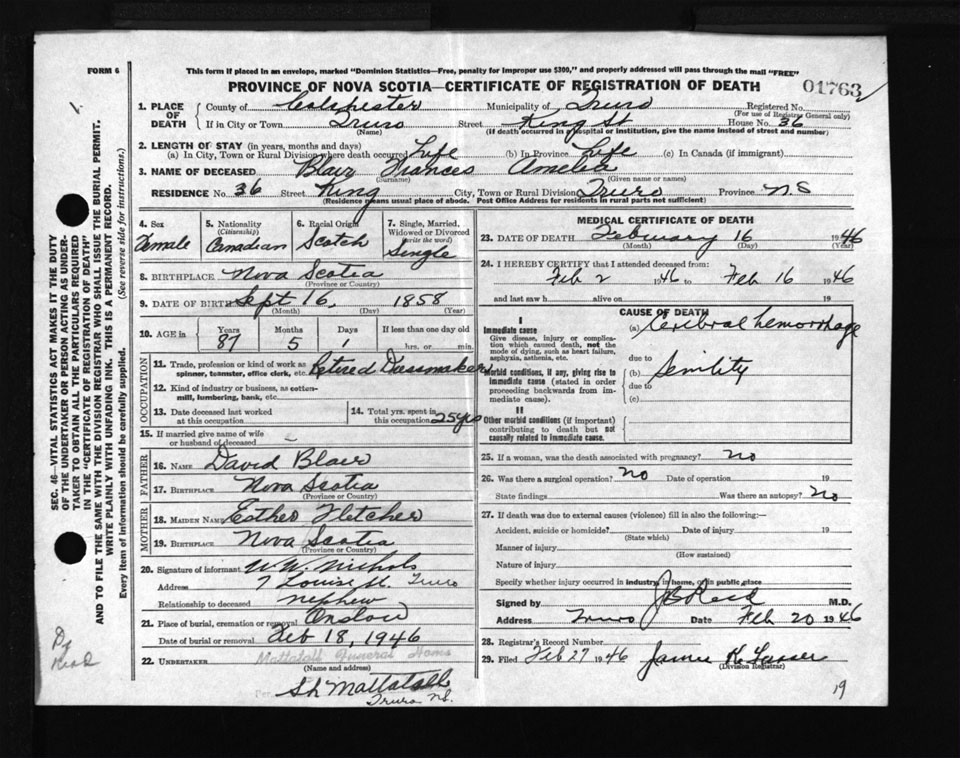 FORM 6
This form if placed in an envelope, marked "Dominion Statistics—Free, penalty for improper use $300," and properly addressed will pass through the mail "FREE"
PROVINCE OF NOVA SCOTIA—CERTIFICATE OF REGISTRATION OF DEATH
01763
1. PLACE OF DEATH
County of Colchester Municipality of Truro Registered No.
(For use of Registrar General only)
If in City or Town Truro Street King St House No. 36
(Name) (If death occurred in hospital or institution, give name instead of street and number)
2. LENGTH OF STAY (in years, months and days)
(a) In City, Town or Rural Division where death occurred Life (b) In Province Life (c) In Canada (if immigrant)
3. NAME OF DECEASED Blair Frances Amelia
(Surname) (Given name or names)
RESIDENCE No. 36 Street King City, Town or Rural Division Truro Province N S
(Residence means usual place of abode. Post Office Address for residents in rural parts not sufficient)
4. Sex Female
5. Nationality (Citizenship) Canadian
6. Racial Origin Scotch
7. Single, Married, Widowed or Divorced (write the word) Single
8. BIRTHPLACE Nova Scotia
(Province or Country)
9. DATE OF BIRTH Sept 16, 1858
(Month) (Day) (Year)
10. AGE in Years Months Days If less than one day old
87 5 1 hrs. or min.
OCCUPATION
11. Trade, profession or kind of work as spinner, teamster, office clerk, etc. Retired Dressmaker
12. Kind of industry or business, as cotton-mill, lumbering, bank, etc.
13. Date deceased last worked at this occupation
14. Total yrs. spent in this occupation 25 yrs
15. If married give name of wife or husband of deceased –
FATHER
16. NAME David Blair
17. BIRTHPLACE Nova Scotia
(Province or Country)
MOTHER
18. MAIDEN NAME Esther Fletcher
19. BIRTHPLACE Nova Scotia
(Province or Country)
20. Signature of informant W. W. Nichols
Address 7 Louise St. Truro
Relationship to deceased nephew
21. Place of burial, cremation or removal Onslow
Date of burial or removal Feb 18, 1946
22. UNDERTAKER Mattatall Funeral Home
(Name and address)
Per
Mattatall
Truro NS.
MEDICAL CERTIFICATE OF DEATH
23. DATE OF DEATH February 16 1946
(Month) (Day) (Year)
24. I HEREBY CERTIFY that I attended deceased from:
Feb 2 1946 Feb 16 1946
and last saw h alive on 19
CAUSE OF DEATH
I
Immediate cause
Give disease, injury or complication which caused death, not the mode of dying, such as heart failure, asphyxia, asthenia, etc.
(a) Cerebral hemorrhage
due to
Morbid conditions, if any, giving rise to immediate cause (stated in order proceeding backwards from immediate cause).
(b) Senility
due to
(c)
II
Other morbid conditions (if important) contributing to death but not causally related to immediate cause.
25. If a woman, was the death associated with pregnancy? No
26. Was there a surgical operation? No Date of operation 19
State findings Was there an autopsy? No
27. If death was due to external causes (violence) fill in also the following:—
Accident, suicide or homicide? Date of injury 19
(State which)
Manner of injury
(How sustained)
Nature of injury
Specify whether injury occurred in industry, in home, or in public place
Signed by J B Reid M.D.
Address Truro Date Feb 20 1946
28. Registrar's Record Number
29. Filed Feb 27 1946 James
(Division Registrar)
19
SEC. 46—VITAL STATISTICS ACT MAKES IT THE DUTY
OF THE UNDERTAKER OR PERSON ACTING AS UNDER-
TAKER TO OBTAIN ALL THE PARTICULARS REQUIRED
IN THE "CERTIFICATE OF REGISTRATION OF DEATH"
AND TO FILE THE SAME WITH THE DIVISION REGISTRAR WHO SHALL ISSUE THE BURIAL PERMIT.
WRITE PLAINLY WITH UNFADING INK. THIS IS A PERMANENT RECORD.
Every item of information should be carefully supplied. (See reverse side for instructions.)
Dr
Reid